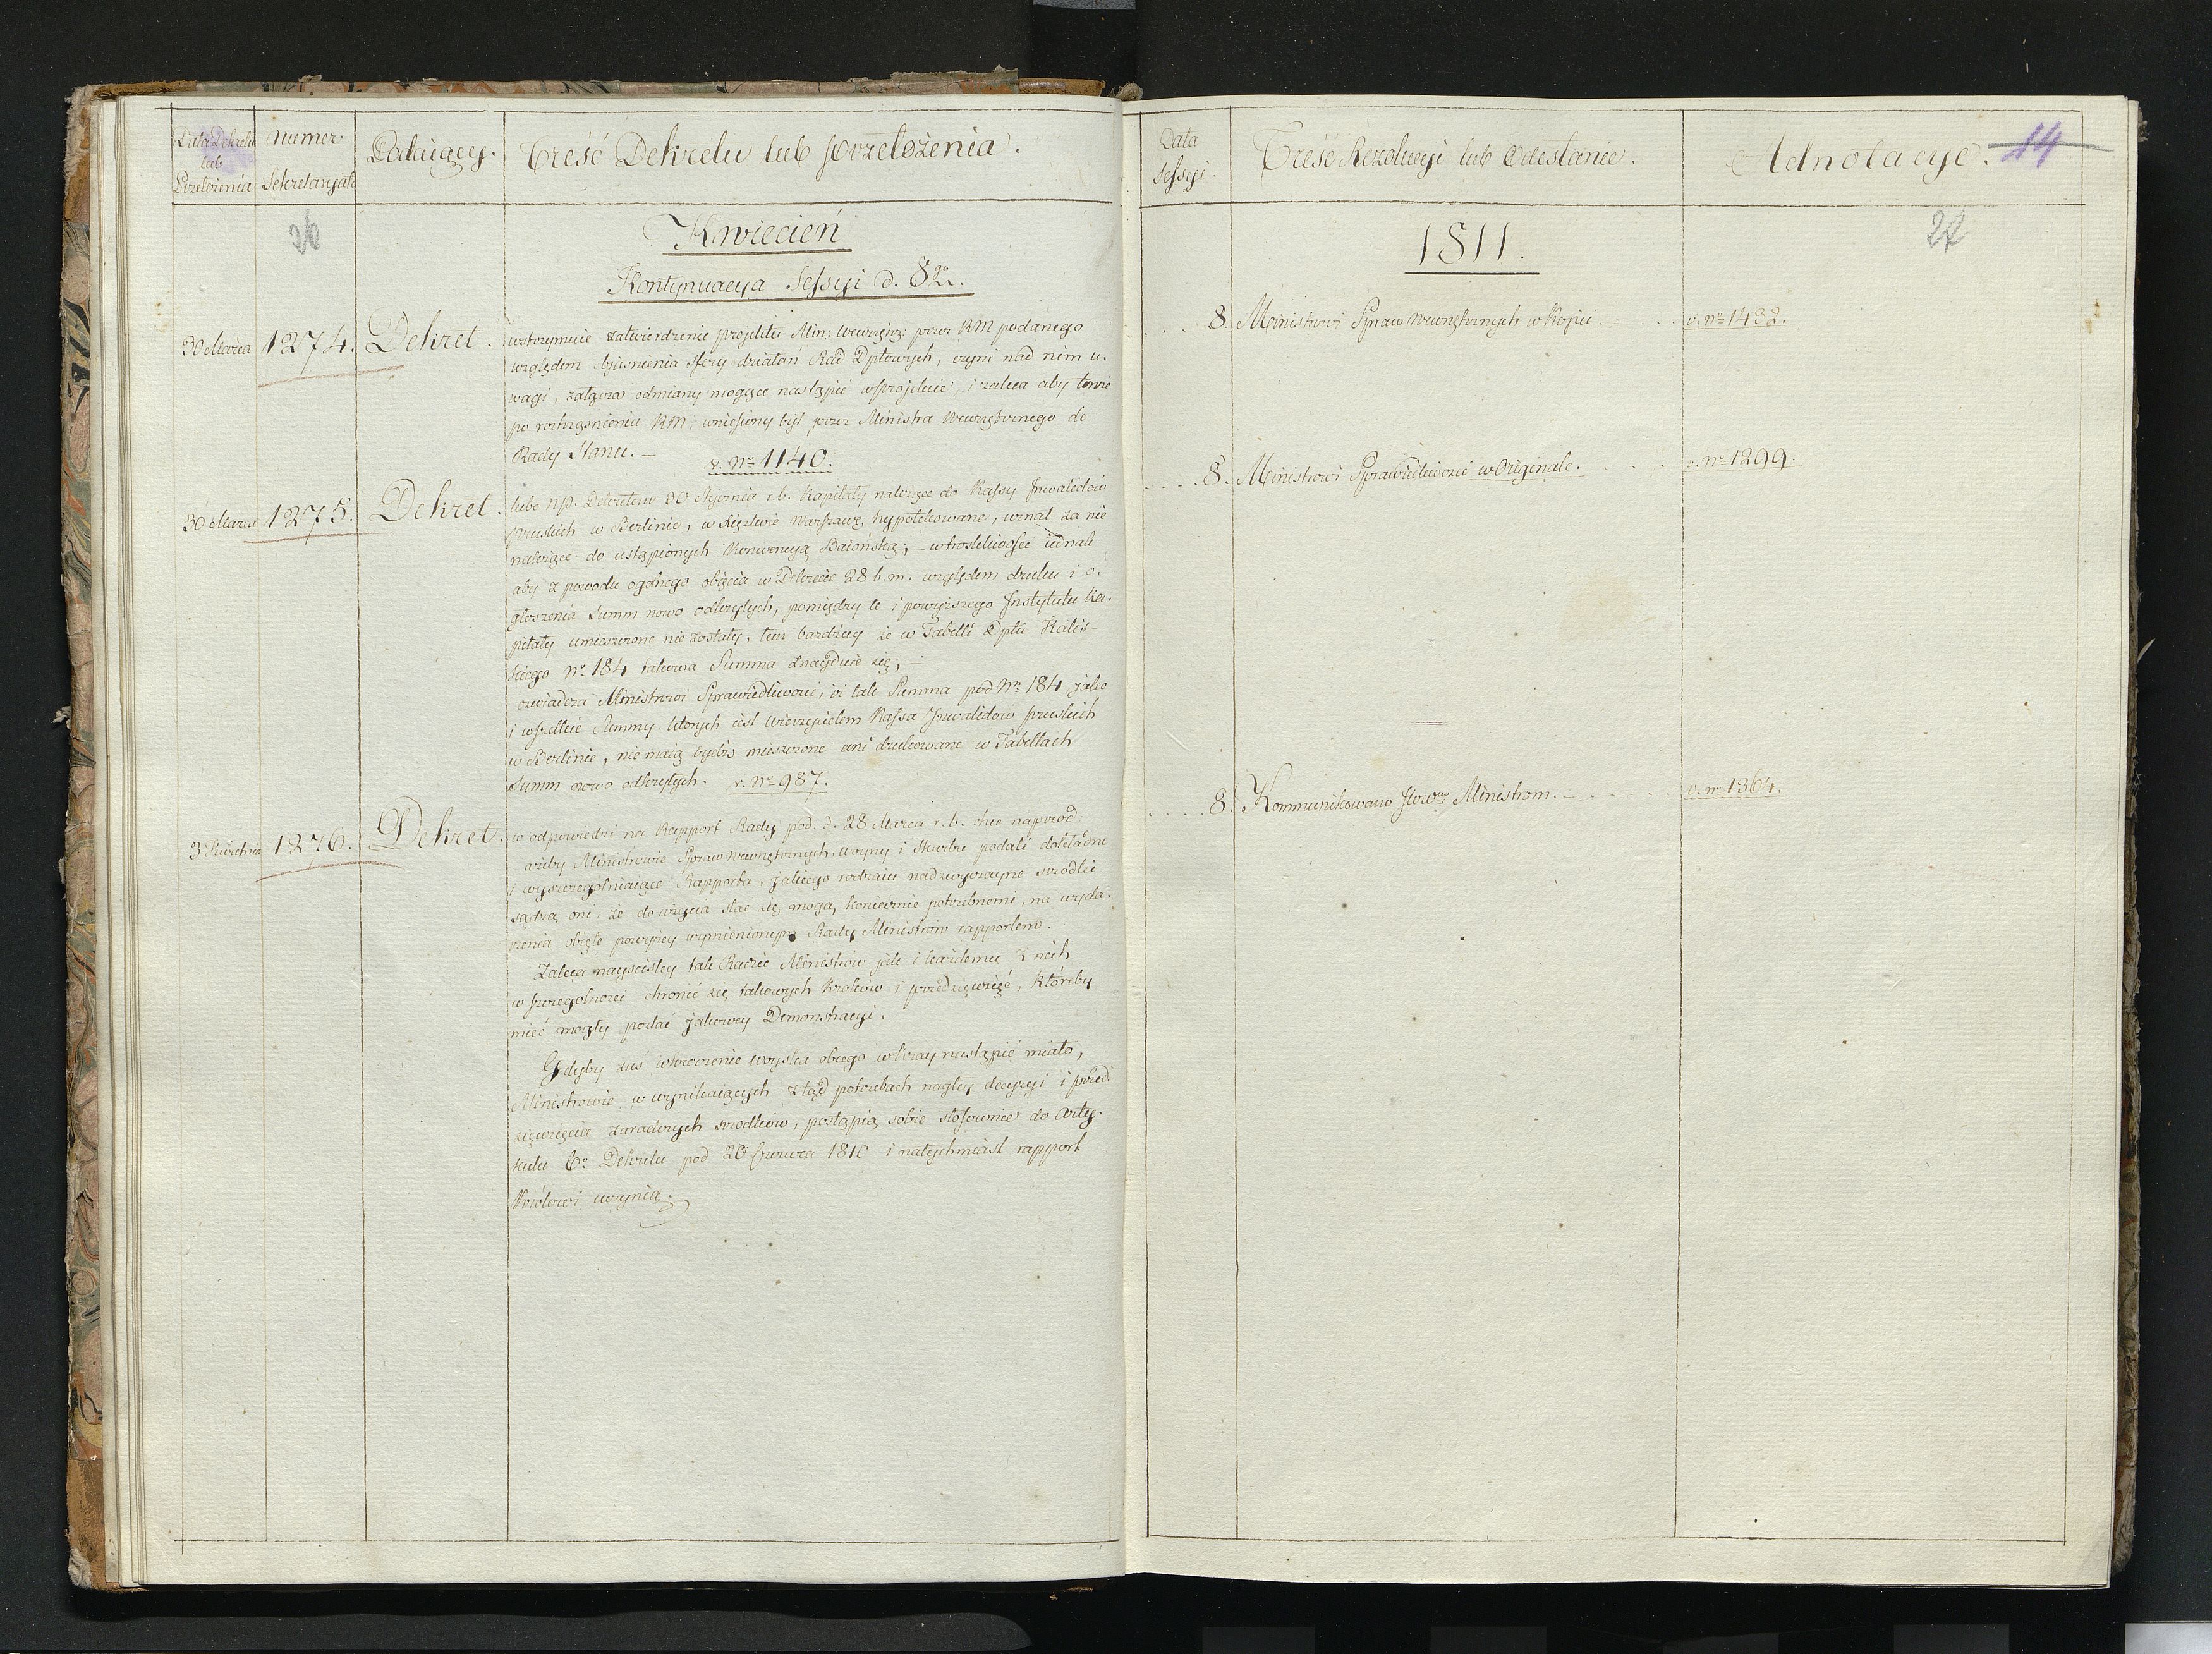 Data Dekretu
lub
Przełożenia
Numer
Sekretaryatu
Podaiący.
Treść Dekretu lub przełożenia.
26
Kwiecień
Kontynuacya Sessyi d. 8
30 Marca 1274. Dekret.
wstrzymuie zatwierdzenie projektu Min: Wewnętrz: przez RM podanego
względem objasnienia sfery działań Rad Dptowych, czyni nad nim u-
wagi, załącza odmiany mogące nastąpić w projekcie, i zaleca aby
po roztrząsnieniu RM, wniesiony był przez Ministra Wewnętrznego do
Rady Stanu. —
v. No 1140.
30 Marca 1275. Dekret.
lubo NP. Dekretem Stycznia r. b. Kapitały należące do Kassy Inwalidów
Pruskich w Berlinie, w Xięztwie Warszaws. hypotekowane, uznał za nie
należące do ustąpionych Konwencyą Baiońską; — w troskliwości iednak
aby z powodu ogólnego obięcia w Dekrecie 28 b. m. względem druku i o-
głoszenia Summ nowo odkrytych, pomiędzy te i powyższego Instytutu Ka-
pitały umieszczone nie zostały, tem bardziey że w Tabelli Dptu Kalis-
kiego No 184 takowa Summa znayduie się; —
oswiadcza Ministrowi Sprawiedliwości, iż tak Summa pod No 184, jako
i wszelkie Summy których iest wierzycielem Kassa Inwalidów pruskich
w Berlinie, nie maią bydź mieszczone ani drukowane w Tabellach
Summ nowo odkrytych. v. No 987.
3 Kwietnia 1276. Dekret.
w odpowiedzi na Rapport Rady pod d. 28 Marca r. b. chce naprzod
ażeby Ministrowie Spraw Wewnętrznych, Woyny i Skarbu podali dokładne
i wyszczególniaiące Rapporta, jakiego rodzaiu nadzwyczayne srodki
sądzą oni, że do użycia stać się mogą koniecznie potrzebnemi, na wyda-
rzenia obięte powyżey wymienionym Rady Ministrów rapportem.
Zaleca nayscisley tak Radzie Ministrów jak i każdemu z nich
w szczególności chronić się takowych kroków i przedsięwzięć, któreby
mieć mogły postać jakowey Demonstracyi.
Gdyby zaś wkroczenie woyska obcego w kray nastąpić miało,
Ministrowie w wynikaiących ztąd potrzebach nagłey decyzyi i przed-
sięwzięcia zaradczych srodków, postąpią sobie stosownie do Arty-
kułu 6o Dekretu pod 20 Czerwca 1810 i natychmiast rapport
Królowi uczynią.
Data
Sessyi.
Treść Rezolucyi lub Odesłanie.
Adnotacye.
14
22
1811.
8. Ministrowi Spraw Wewnętrznych w Kopii. v. No 1432.
8. Ministrowi Sprawiedliwości w Originale. v. No 1299.
8. Kommunikowano Ministrom. v. No 1364.